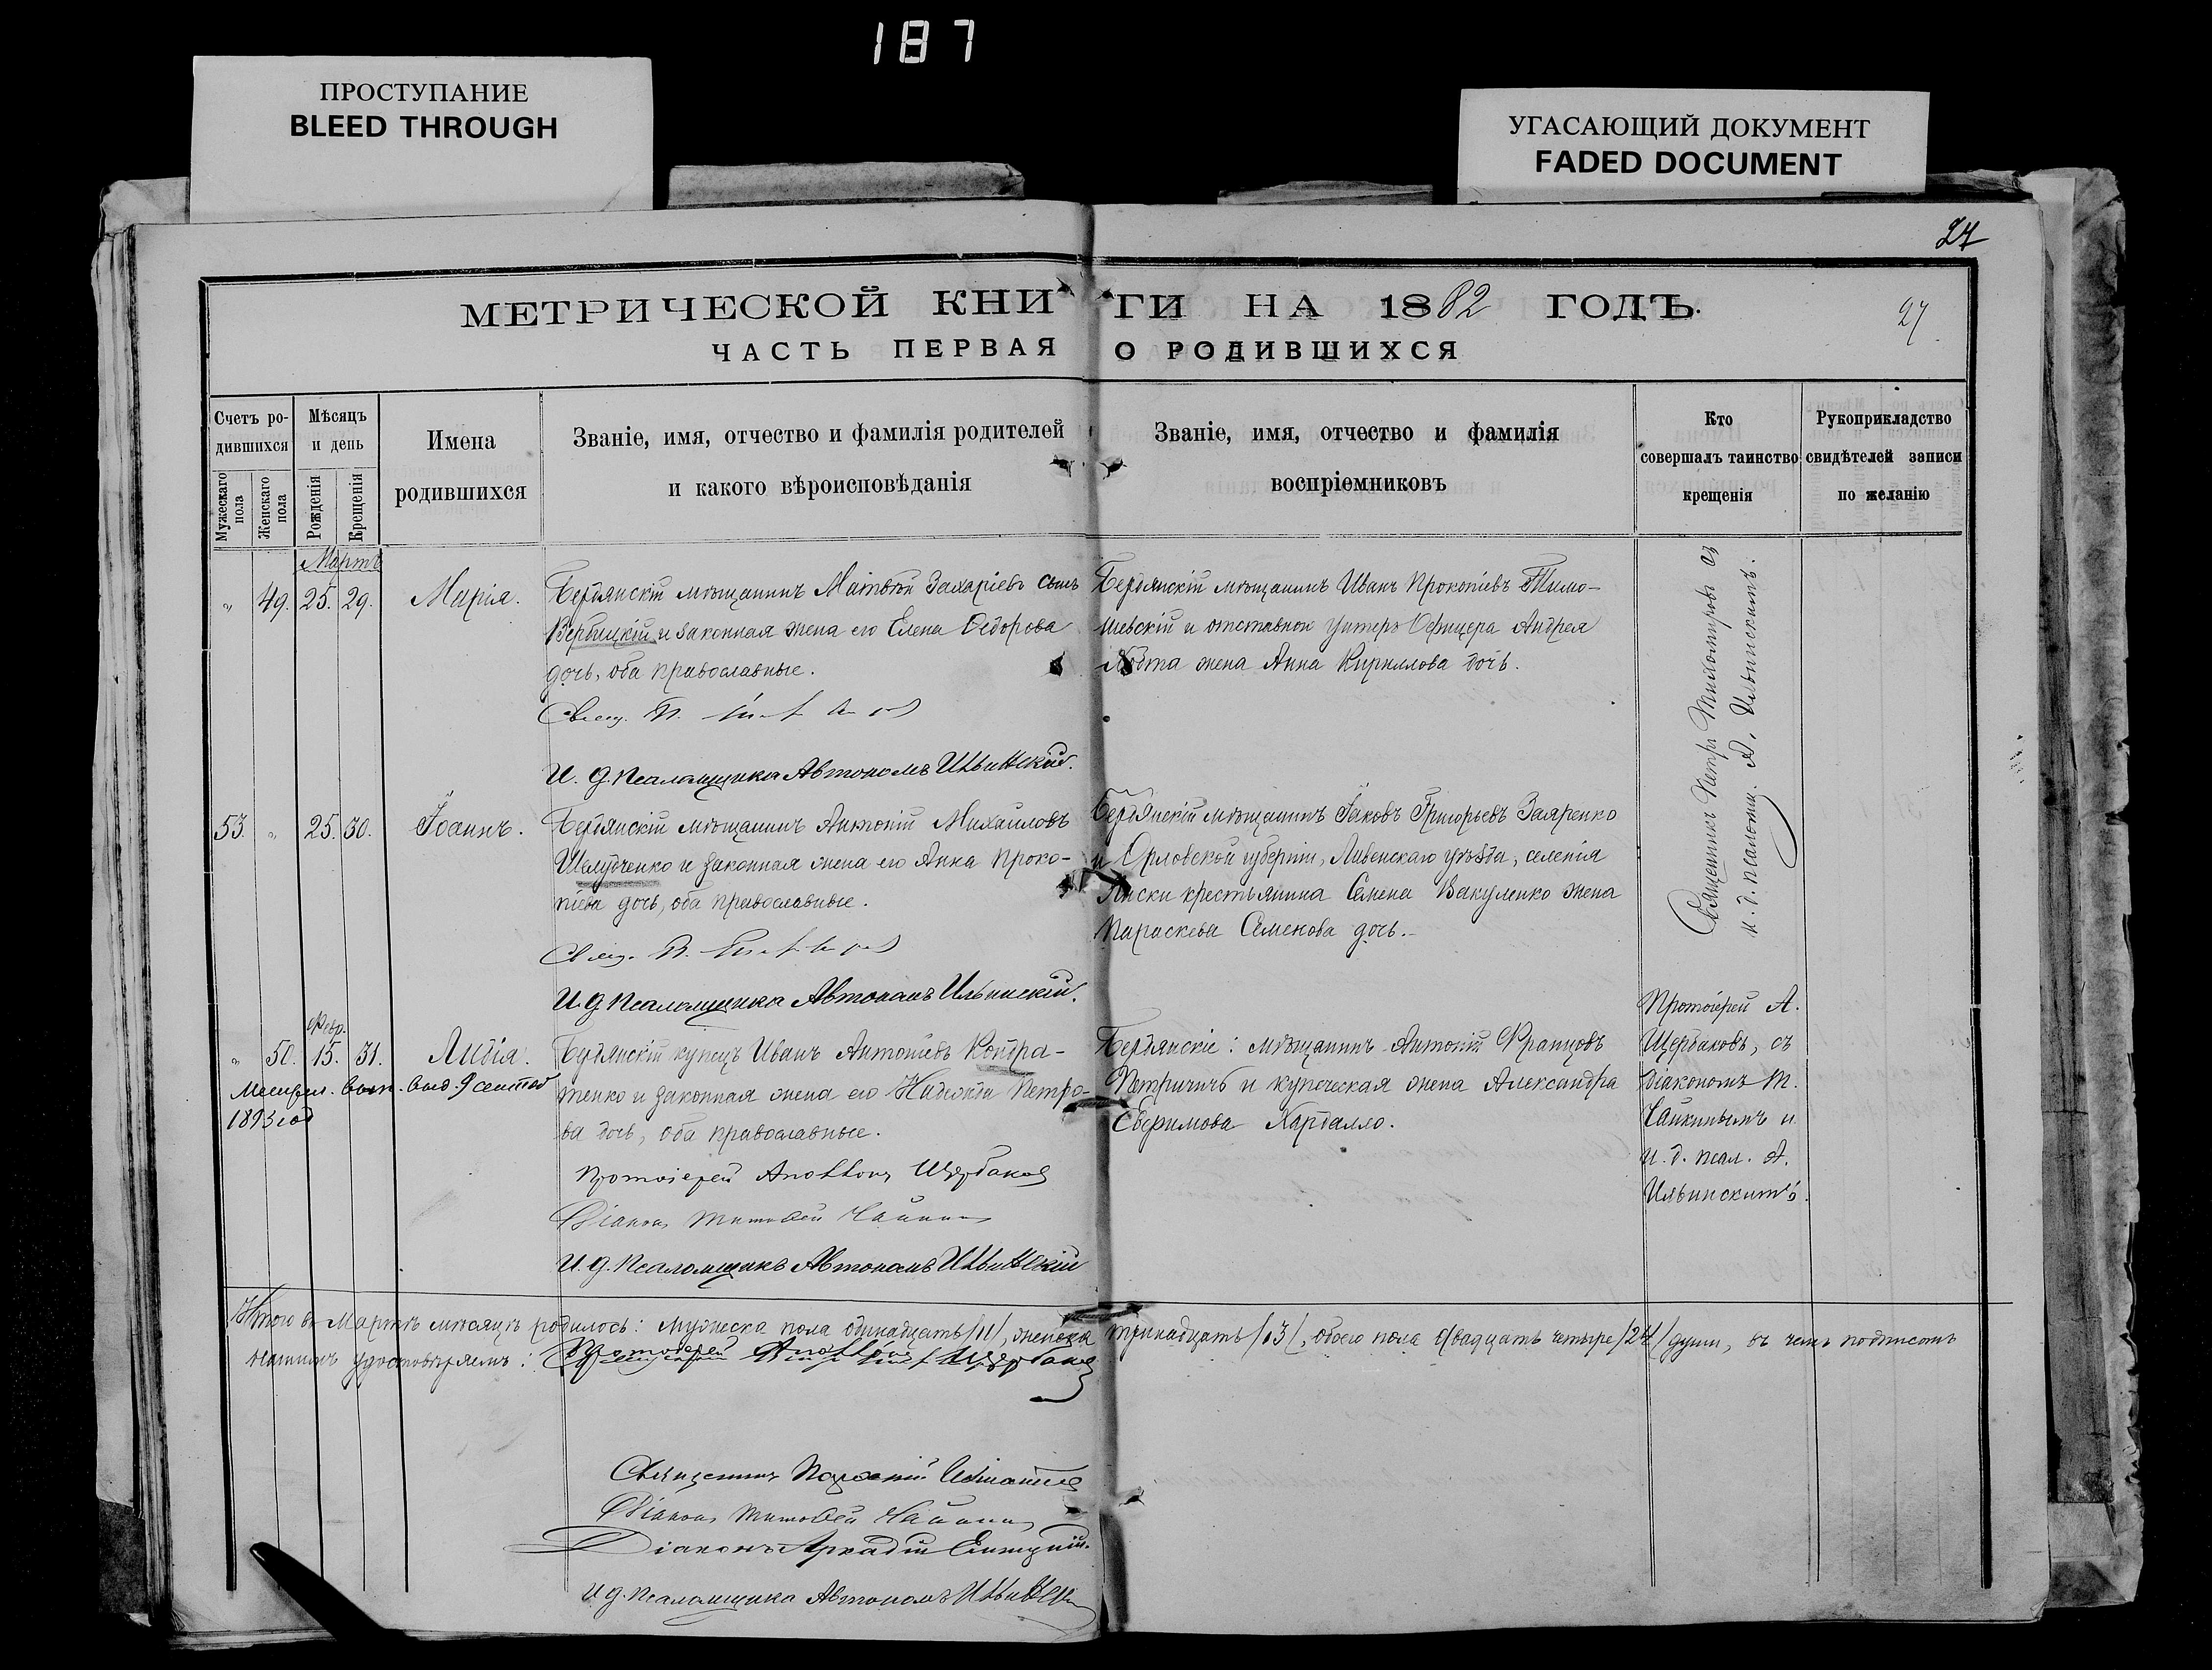 187
ПРОСТУПАНИЕ
BLEED THROUGH
УГАСАЮЩИЙ ДОКУМЕНТ
FADED DOCUMENT
27
МЕТРИЧЕСКОЙ КНИГИ НА 1882 ГОДЪ.
27
ЧАСТЬ ПЕРВАЯ О РОДИВШИХСЯ
Счетъ ро-
дившихся
Мужескаго пола
Женскаго пола
Мѣсяцъ
и день
Рожденія
Крещенія
Имена
родившихся
Званіе, имя, отчество и фамилія родителей
и какого вѣроисповѣданія
Званіе, имя, отчество и фамилія
воспріемниковъ
Кто
совершалъ таинство
крещенія
Рукоприкладство
свидѣтелей записи
по желанію
Мартъ
" 49. 25. 29. Марія.
Бердянскій мѣщанинъ Матвѣй Захаріевъ сынъ
Вербицкій и законная жена его Елена Ѳедорова
дочь, оба православные.
Свящ. П.
И. д. Псаломщика Автономъ Ильинскій.
Бердянскій мѣщанинъ Иванъ Прокопіевъ Тимо-
шевскій и отставнаго Унтеръ Офицера Андрея
жена Анна Кириллова дочь.
Священникъ Петръ Тихомировъ съ
и. д. псаломщ. А. Ильинскимъ.
53. " 25. 30. Іоаннъ.
Бердянскій мѣщанинъ Антоній Михайловъ
Шелудченко и законная жена его Анна Проко-
піева дочь, оба православные.
Свящ. П.
И. д. Псаломщика Автономъ Ильинскій.
Бердянскій мѣщанинъ Іаковъ Григорьевъ Заяренко
и Орловской губерніи, Ливенскаго уѣзда, селенія
крестьянина Семена Вакуленко жена
Параскева Семенова дочь.
Февр.
" 50. 15. 31. Лидія.
вып. выд. 9 сентяб
1893 год
Бердянскій купецъ Иванъ Антоніевъ Кондра-
тенко и законная жена его Надежда Петро-
ва дочь, оба православные.
Протоіерей Щербаковъ
Діаконъ Тимоѳей Чайкинъ
И. д. Псаломщикъ Автономъ Ильинскій
Бердянскіе: мѣщанинъ Антоній Францовъ
Петричичъ и купеческая жена Александра
Евфимова
Протоіерей А.
Щербаковъ, съ
діакономъ Т.
Чайкинымъ и
и. д. псал. А.
Ильинскимъ.
Итого въ Мартѣ мѣсяцѣ родилось: мужеска пола одинадцать /11/, женска тринадцать /13/, обоего пола двадцать четыре /24/ души, въ чемъ подписомъ
нашимъ удостовѣряемъ: Протоіерей Щербаковъ
Священникъ
Діаконъ Тимоѳей Чайкинъ
Діаконъ Аркадій
И. д. Псаломщика Автономъ Ильинскій